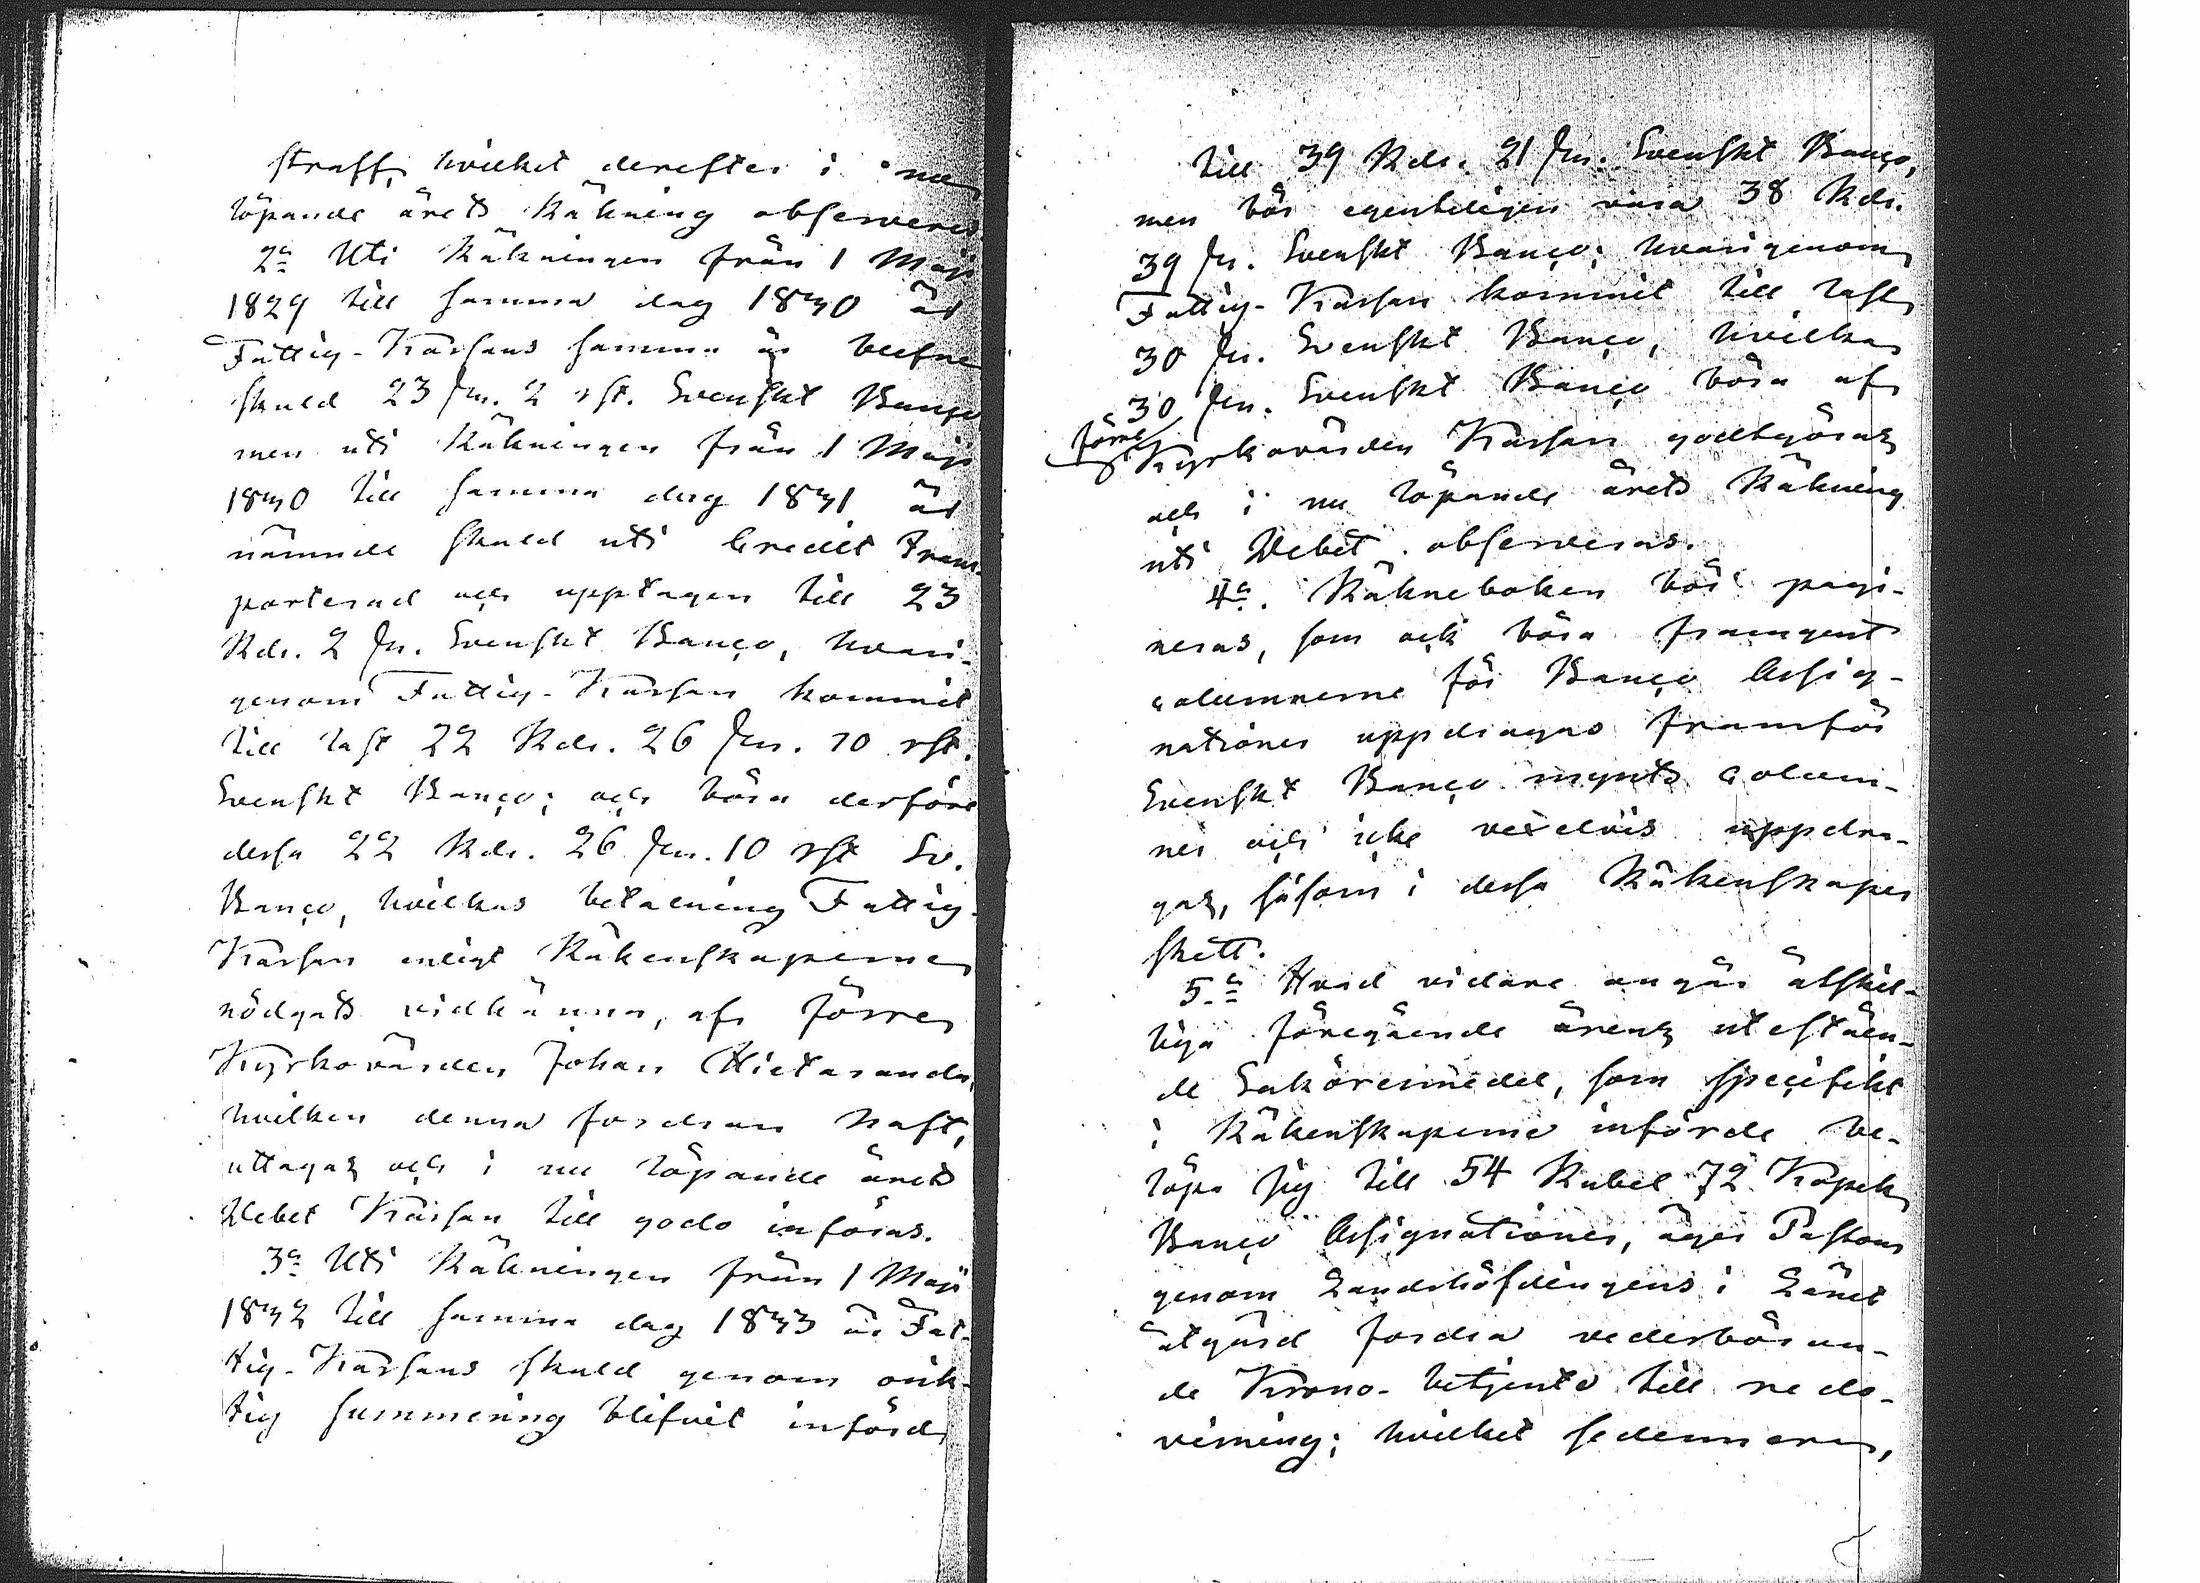 straff, hvilket derefter i nu
löpande årets Räkning observeras.
2:a Uti Räkningen från 1 Maji
1829 till samma dag 1830 är
Fattig-Kassans samma år blefne
skuld 23 sk. 2 rst. Svenskt Banco
men uti Räkningen från 1 Maji
1830 till samma dag 1831 är
nämnde skuld uti Credit trans-
porterad och upptagen till 23
Rdr. 2 sk. Svenskt Banco, hvari-
genom Fattig-Kassan kommit
till last 22 Rdr. 26 sk. 10 rst.
Svenskt Banco; och böra derföre
dessa 22 Rdr. 26 sk. 10 rst Sv.
Banco, hvilkas betalning Fattig-
Kassan enligt Räkenskaperne
nödgats vidkänna, af förre
Kyrkovärden Johan Hietaranda,
hvilken denna fordran haft,
uttagas och i nu löpande årets
Debet Kassan till godo införas.
3:a Uti Räkningen från 1 Maji
1832 till samma dag 1833 är Fat-
tig-Kassans skuld genom orik-
tig summering blifvit införd
till 39 Rdr. 21 sk. Svenskt Banco,
men bör egenteligen vara 38 Rdr.
39 sk. Svenskt Banco; hvarigenom
Fattig-Kassan kommit till last
30 sk. Svenskt Banco, hvilka
30 sk. Svenskt Banco böra af
förre
Kyrkovärden Kassan godtgöras
och i nu löpande årets Räkning
uti Debet observeras.
4:a. Räkneboken bör pagi-
neras, som ock böra framgent
columnerne för Banco Assig-
nationer uppdragas framför
Svenskt Banco mynts colum-
ner och icke vexelvis uppdra-
gas, såsom i dessa Räkenskaper
skett.
5:a Hvad vidare angår åtskil-
liga föregående årens utestående-
de Saköresmedel, som specifikt
i Räkenskaperne införde be-
löpa sig till 54 Rubel 72 Kopek
Banco Assignationer, äger Pastorn
genom Landshöfdingens i Länet
åtgärd fordra vederböran-
de Krono-betjente till redo-
visning; hvilket sedermera,